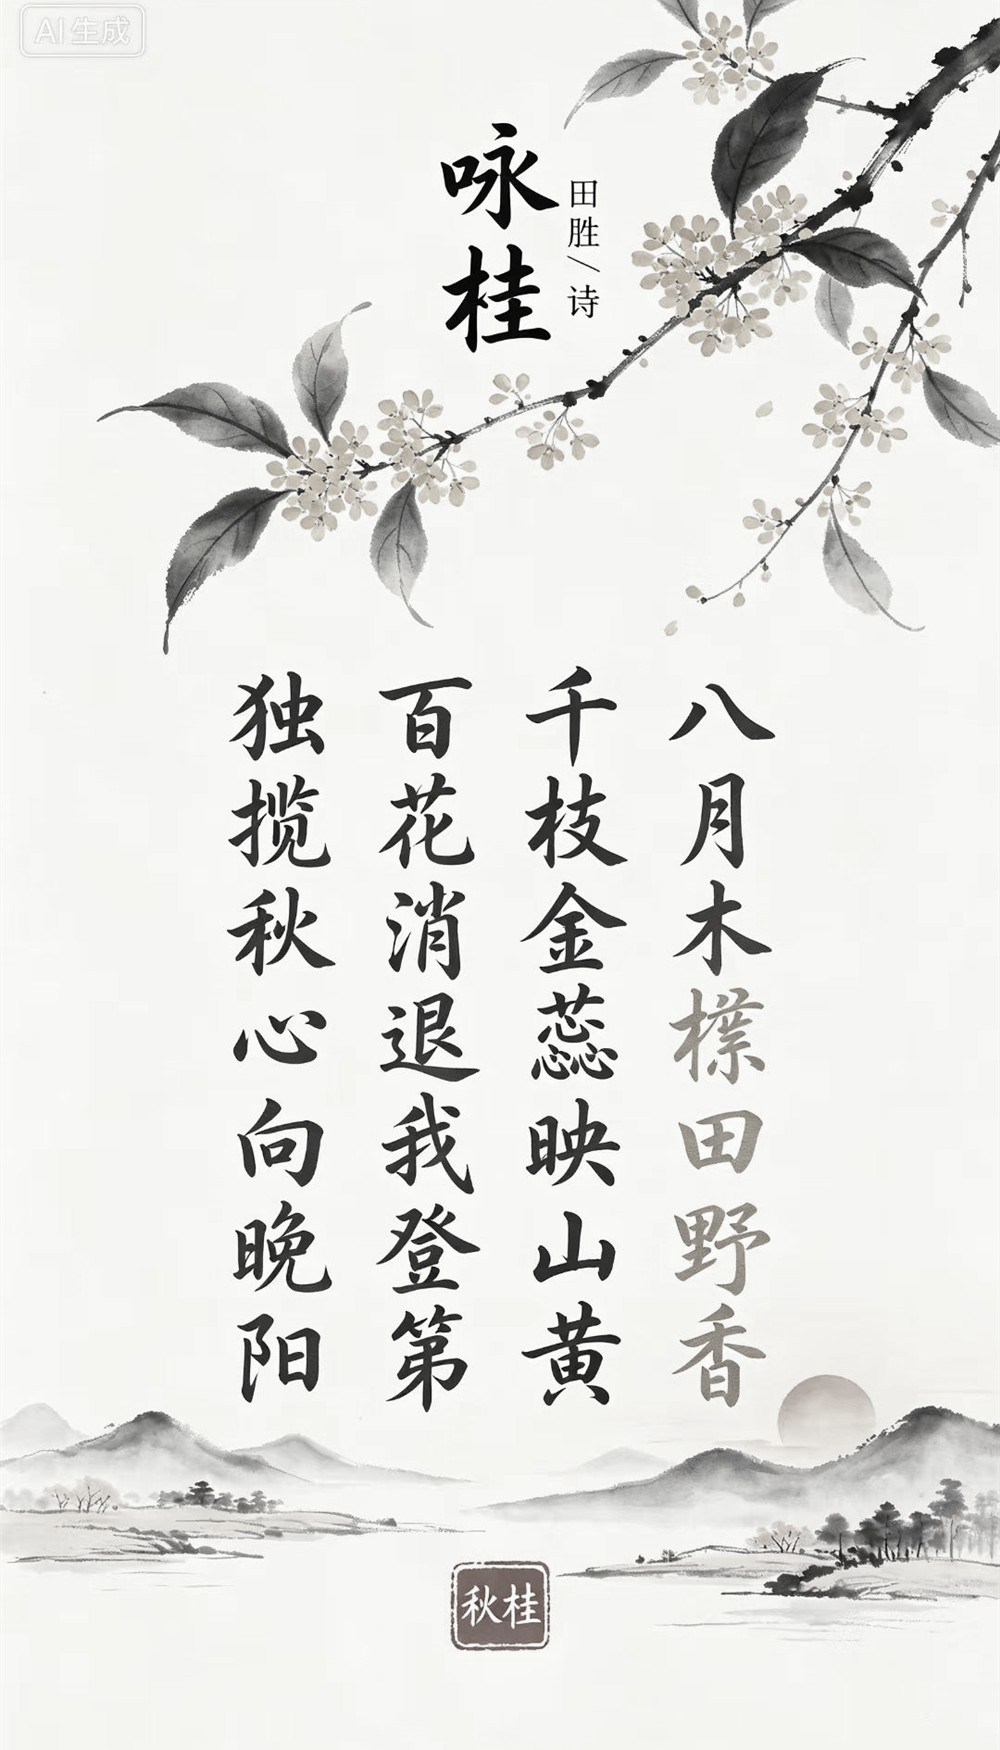 AI生成
咏桂
田胜/诗
八月木檏田野香
千枝金蕊映山黄
百花消退我登第
独揽秋心向晚阳
秋桂